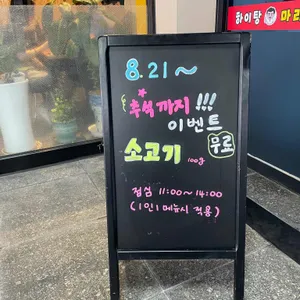 하이탕
마라
8.21~
추석까지!!!
이벤트
소고기 100g 무료
점심 11:00~14:00
(1인 1메뉴시 적용)